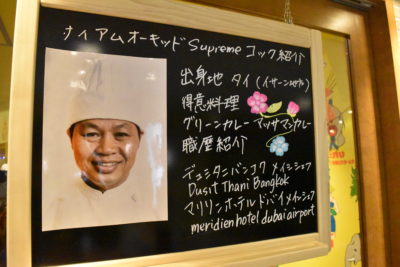 サイアムオーキッド Supreme コック紹介
出身地 タイ (イサーン
得意料理
グリーンカレー マッサマンカレー
職歴紹介
デュシタニバンコク メインシェフ
Dusit Thani Bangkok
マリリンホテルドバイ メインシェフ
meridien hotel dubai airport